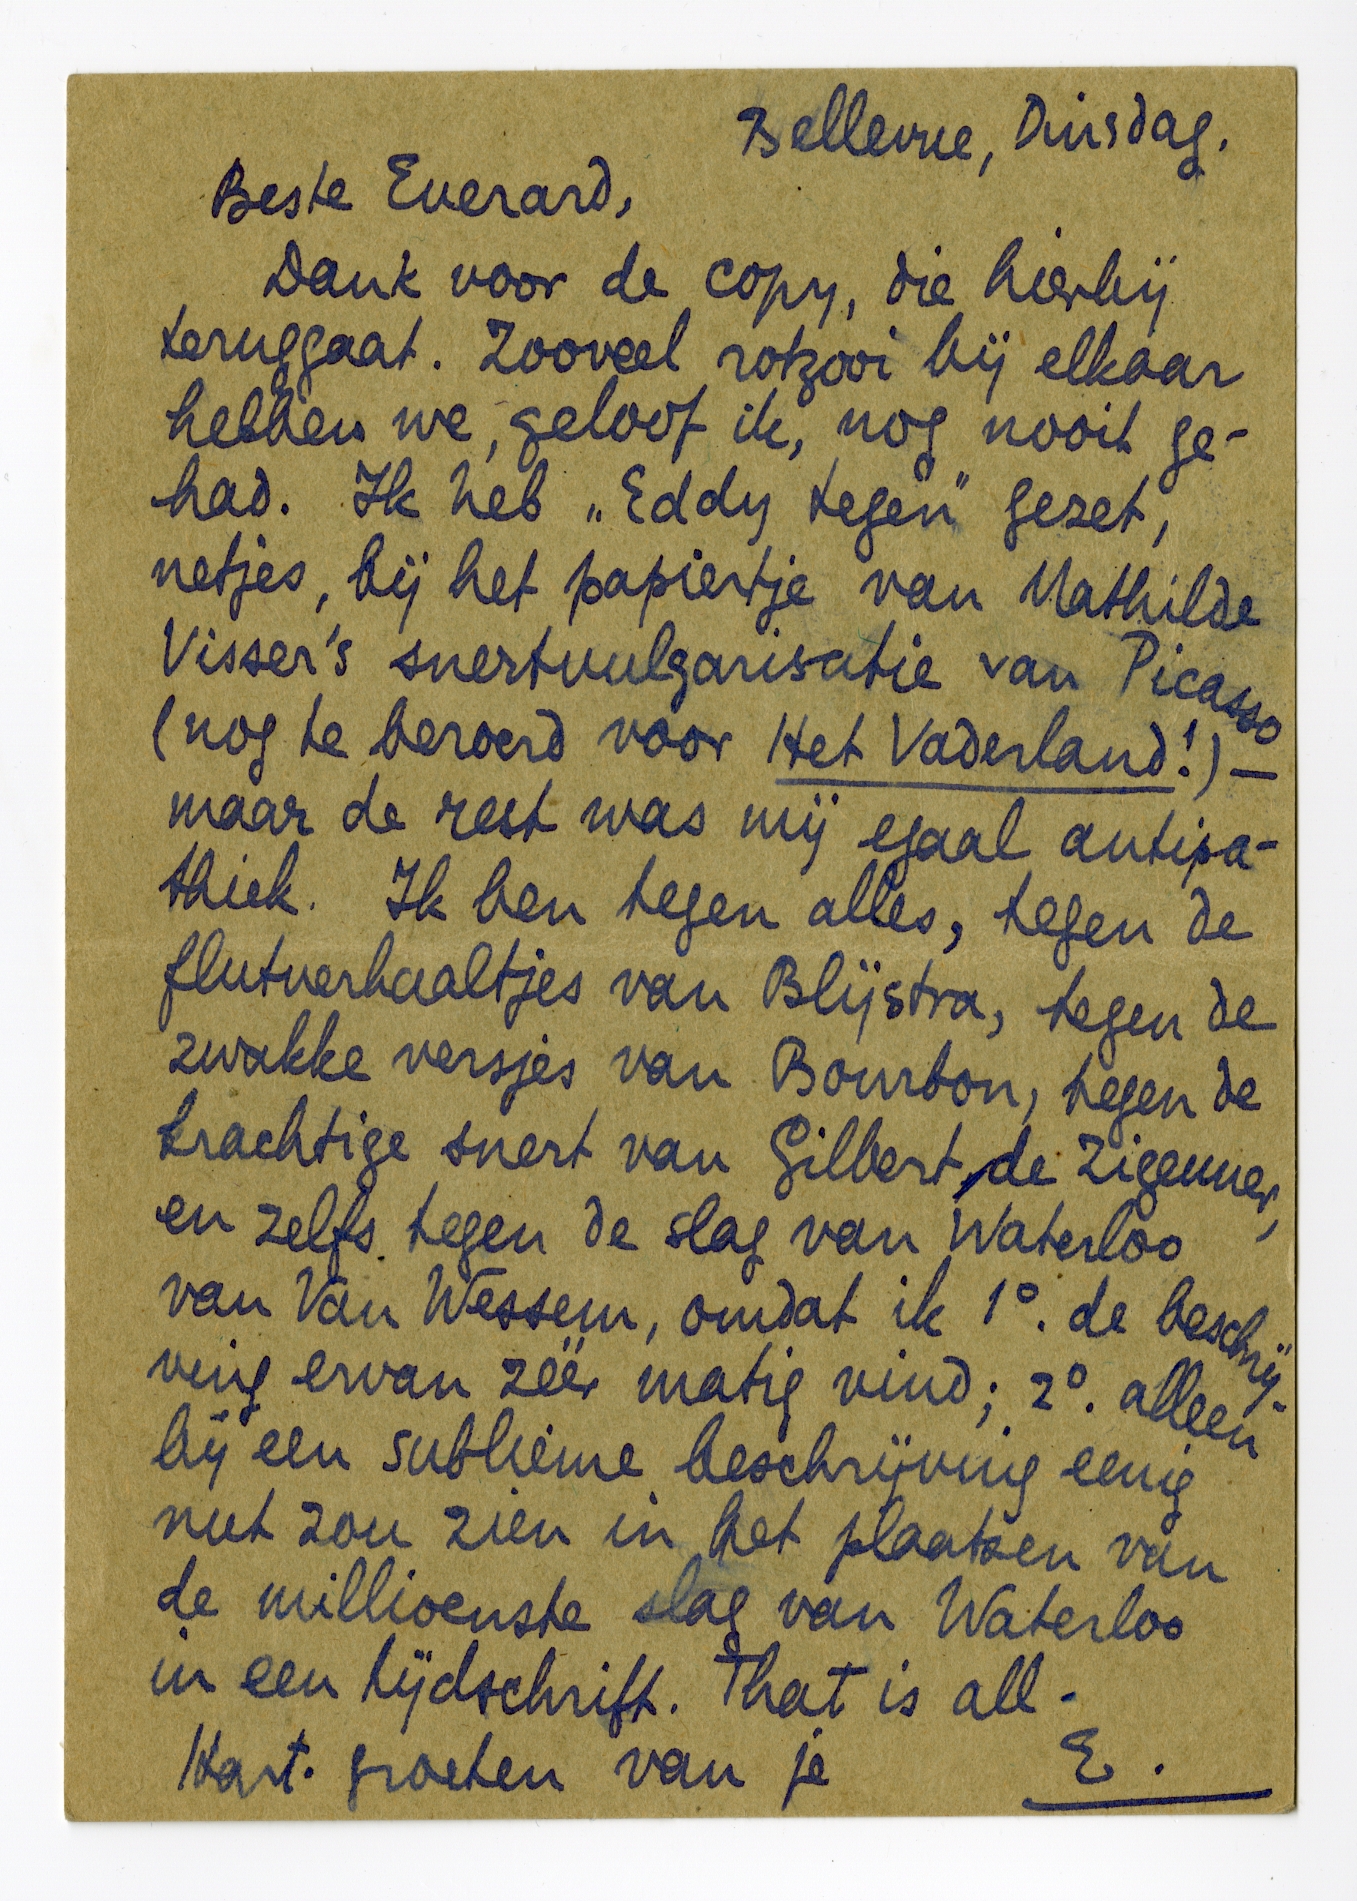 Bellevue, Dinsdag.
Beste Everard,
Dank voor de copy, die hierbij
teruggaat. Zooveel rotzooi bij elkaar
hebben we, geloof ik, nog nooit ge-
had. Ik heb „Eddy tegen” gezet,
netjes, bij het papiertje van Mathilde
Visser's snertvulgarisatie van Picasso
(nog te beroerd voor Het Vaderland!) —
maar de rest was mij egaal antipa-
thiek. Ik ben tegen alles, tegen de
flutverhaaltjes van Blijstra, tegen de
zwakke versjes van Bourbon, tegen de
krachtige snert van Gilbert, de Zigeuner,
en zelfs tegen de slag van Waterloo
van Van Wessem, omdat ik 1°. de beschrij-
ving ervan zéér matig vind; 2°. alleen
bij een sublieme beschrijving eenig
nut zou zien in het plaatsen van
de millioenste slag van Waterloo
in een tijdschrift. That is all -
Hart. groeten van je E.